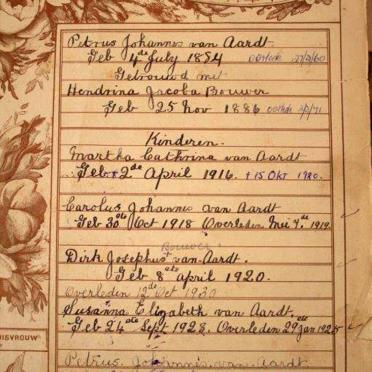 Petrus Johannes van Aardt
Geb 4de July 1884 overlede 27/2/60
Getrouwd met
Hendrina Jacoba Bouwer
Geb 25 Nov 1886 overlede 2/2/71
Kinderen.
Martha Cathrina van Aardt
Geb 2de April 1916. + 15 Okt 1980.
Carolus Johannis van Aardt
Geb 30ste Oct 1918 Overleden Mei 4de 1919.
Bouwer
Dirk Josephus van Aardt.
Geb 8ste April 1920.
Overleden 12de Oct 1930
Susanna Elizabeth van Aardt.
Geb 24ste Sept 1928. Overleden 29 Jan
ISVROUW
Petrus Johannis van Aardt